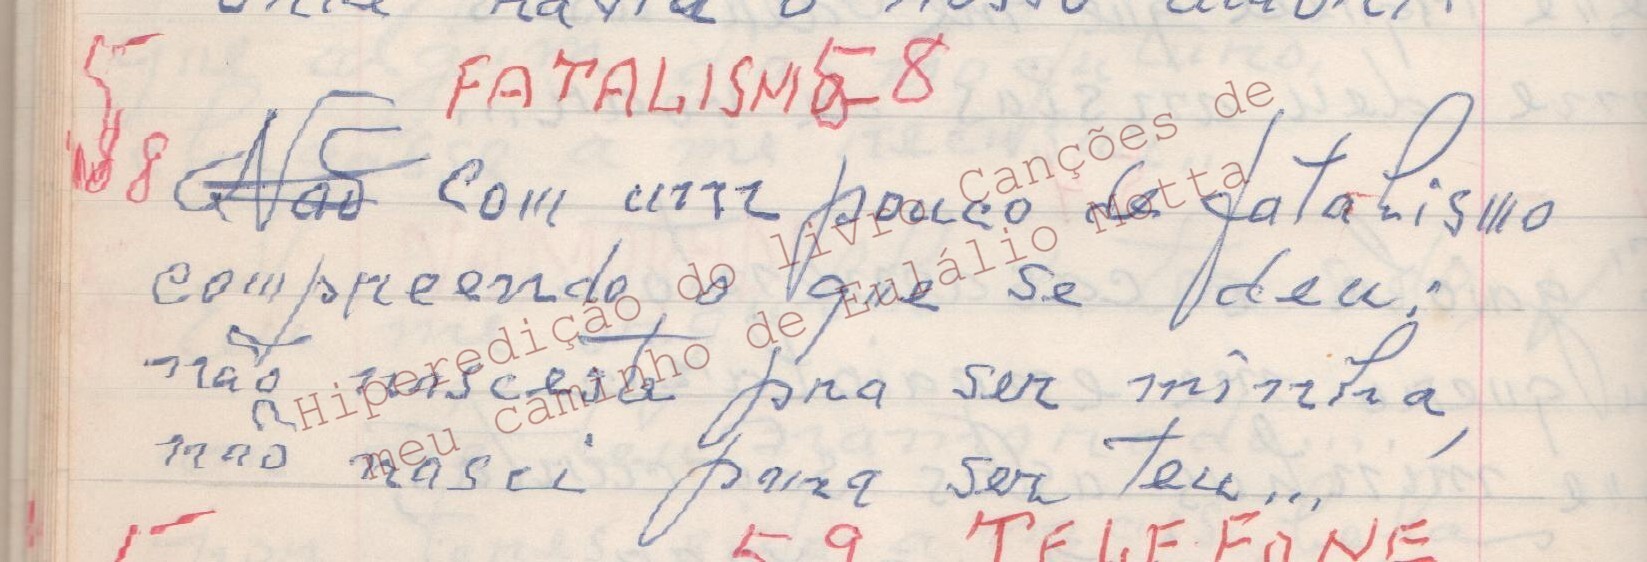 onde havia o nosso
5
FATALISMO 58
58 Não Com um pouco de fatalismo
compreendo o que se deu;
não nasceste pra ser minha,
não nasci para ser teu...
5 59 TELEFONE
Hiperedição do livro Canções de
meu caminho de Eulálio Motta